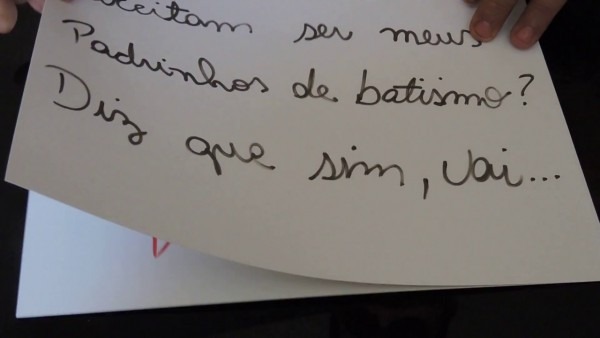 Aceitam ser meus
Padrinhos de batismo?
Diz que sim, vai...